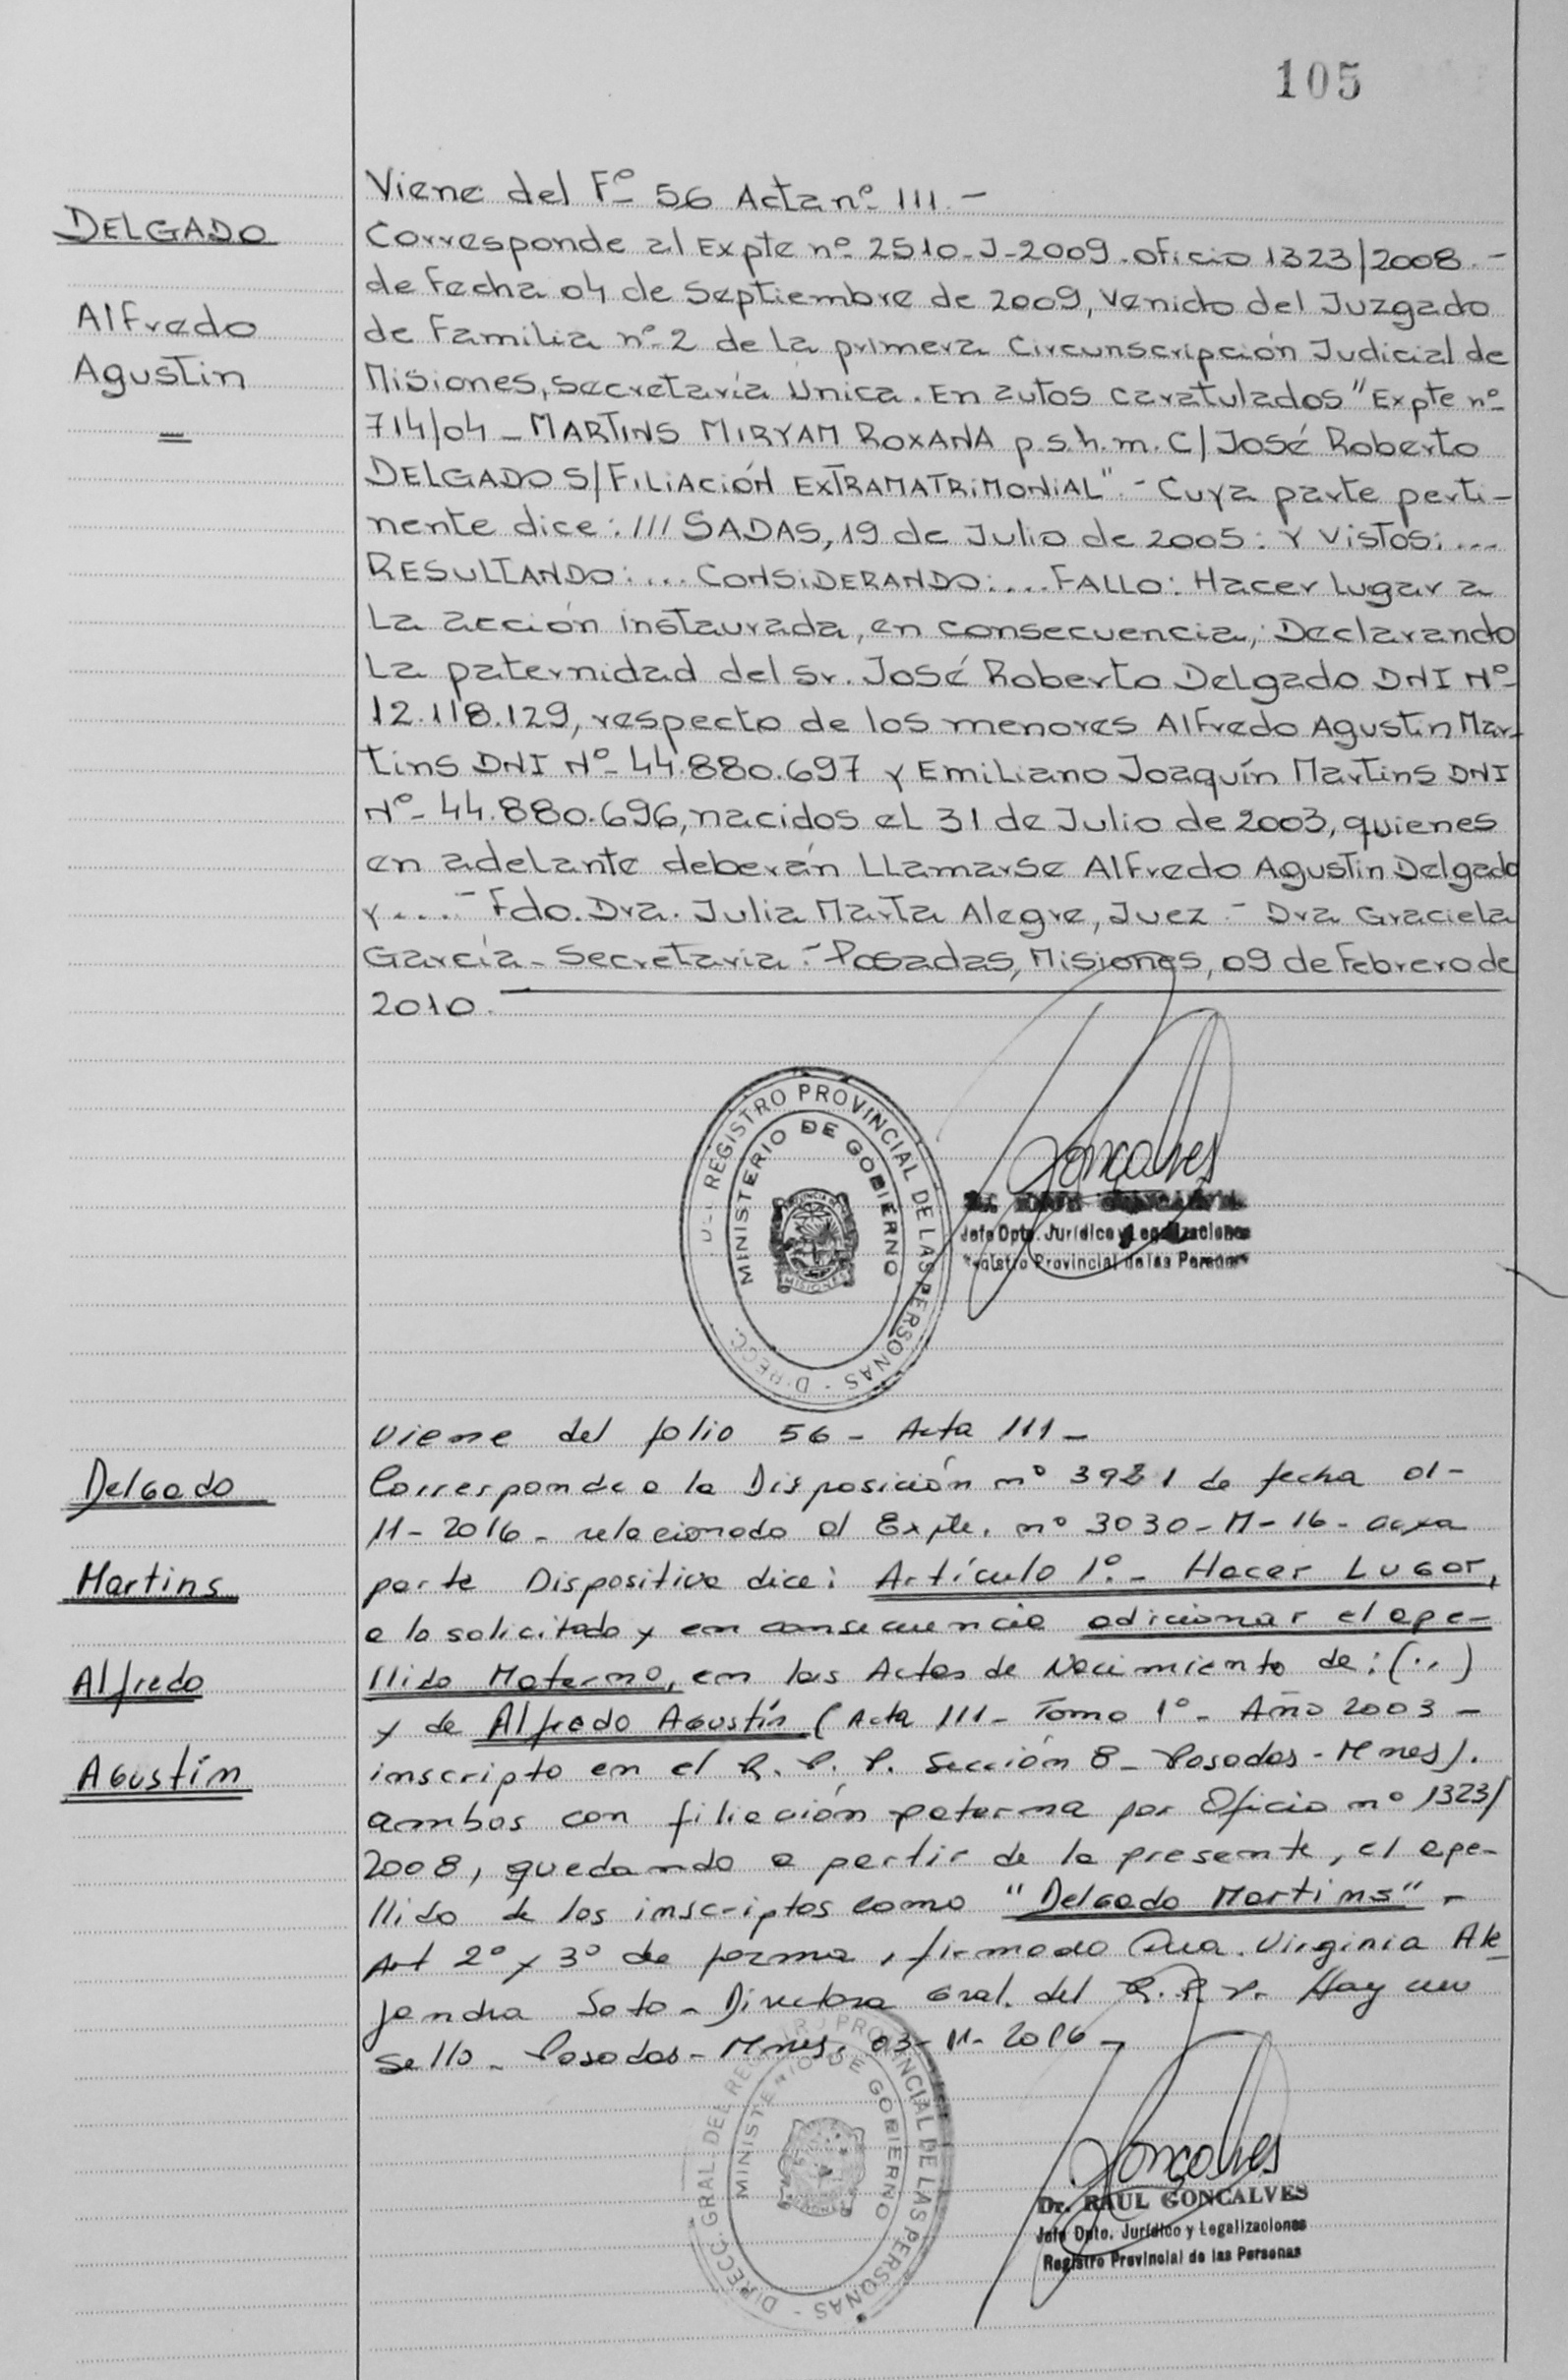 105
Viene del Fº 56 Acta nº 111.-
DELGADO
Corresponde al Expte nº 2510-J-2009-oficio 1323/2008.-
de Fecha 04 de Septiembre de 2009, Venido del Juzgado
Alfredo
de Familia nº 2 de La primera Circunscripción Judicial de
Agustin
Misiones, Secretaría Única. En autos caratulados "Expte nº
714/04 - MARTINS MIRYAM ROXANA p.s.h.m. C/ JOSÉ Roberto
DELGADO S/ FILIACIÓN EXTRAMATRIMONIAL".- Cuya parte perti-
nente dice: /// SADAS, 19 de Julio de 2005: Y Vistos: ...
RESULTANDO: ... CONSIDERANDO: ... FALLO: Hacer Lugar a
La acción instaurada, en consecuencia, Declarando
La paternidad del Sr. José Roberto Delgado DNI Nº
12.118.129, respecto de los menores Alfredo Agustin Mar-
tins DNI Nº 44.880.697 y Emiliano Joaquín Martins DNI
Nº 44.880.696, nacidos el 31 de Julio de 2003, quienes
en adelante deberán LLamarse Alfredo Agustin Delgado
y ....- Fdo. Dra. Julia Marta Alegre, Juez - Dra Graciela
García - Secretaria.- Posadas, Misiones, 09 de Febrero de
2010.
DEL REGISTRO PROVINCIAL DE LAS PERSONAS - DIRECC.
MINISTERIO DE GOBIERNO
MISIONES
Goncalves
Jefe Dpto. Jurídico y Legalizaciones
Registro Provincial de las Personas
Viene del folio 56 - Acta 111 -
Delgado
Corresponde a la Disposición nº 3921 de fecha 01-
11-2016 - relacionado al Expte. nº 3030-M-16- cuya
Martins
parte Dispositiva dice: Artículo 1º.- Hacer Lugar,
a lo solicitado y en consecuencia adicionar el ape-
Alfredo
llido Materno, en las Actas de Nacimiento de: (..)
y de Alfredo Agustín (Acta 111 - Tomo 1º - Año 2003 -
Agustín
inscripto en el R. P. P. Sección 8 - Posadas - Mnes).
ambos con filiación paterna por Oficio nº 1323/
2008, quedando a partir de la presente, el ape-
llido de los inscriptos como "Delgado Martins" -
Art 2º y 3º de forma, firmado Dra. Virginia Ale
jandra Soto - Directora Gral. del R. P. P. Hay un
Sello - Posadas - Mnes, 03-11-2016 -
DIRECC. GRAL. DEL REGISTRO PROVINCIAL DE LAS PERSONAS -
MINISTERIO DE GOBIERNO
Goncalves
Dr. RAUL GONCALVES
Jefe Dpto. Jurídico y Legalizaciones
Registro Provincial de las Personas